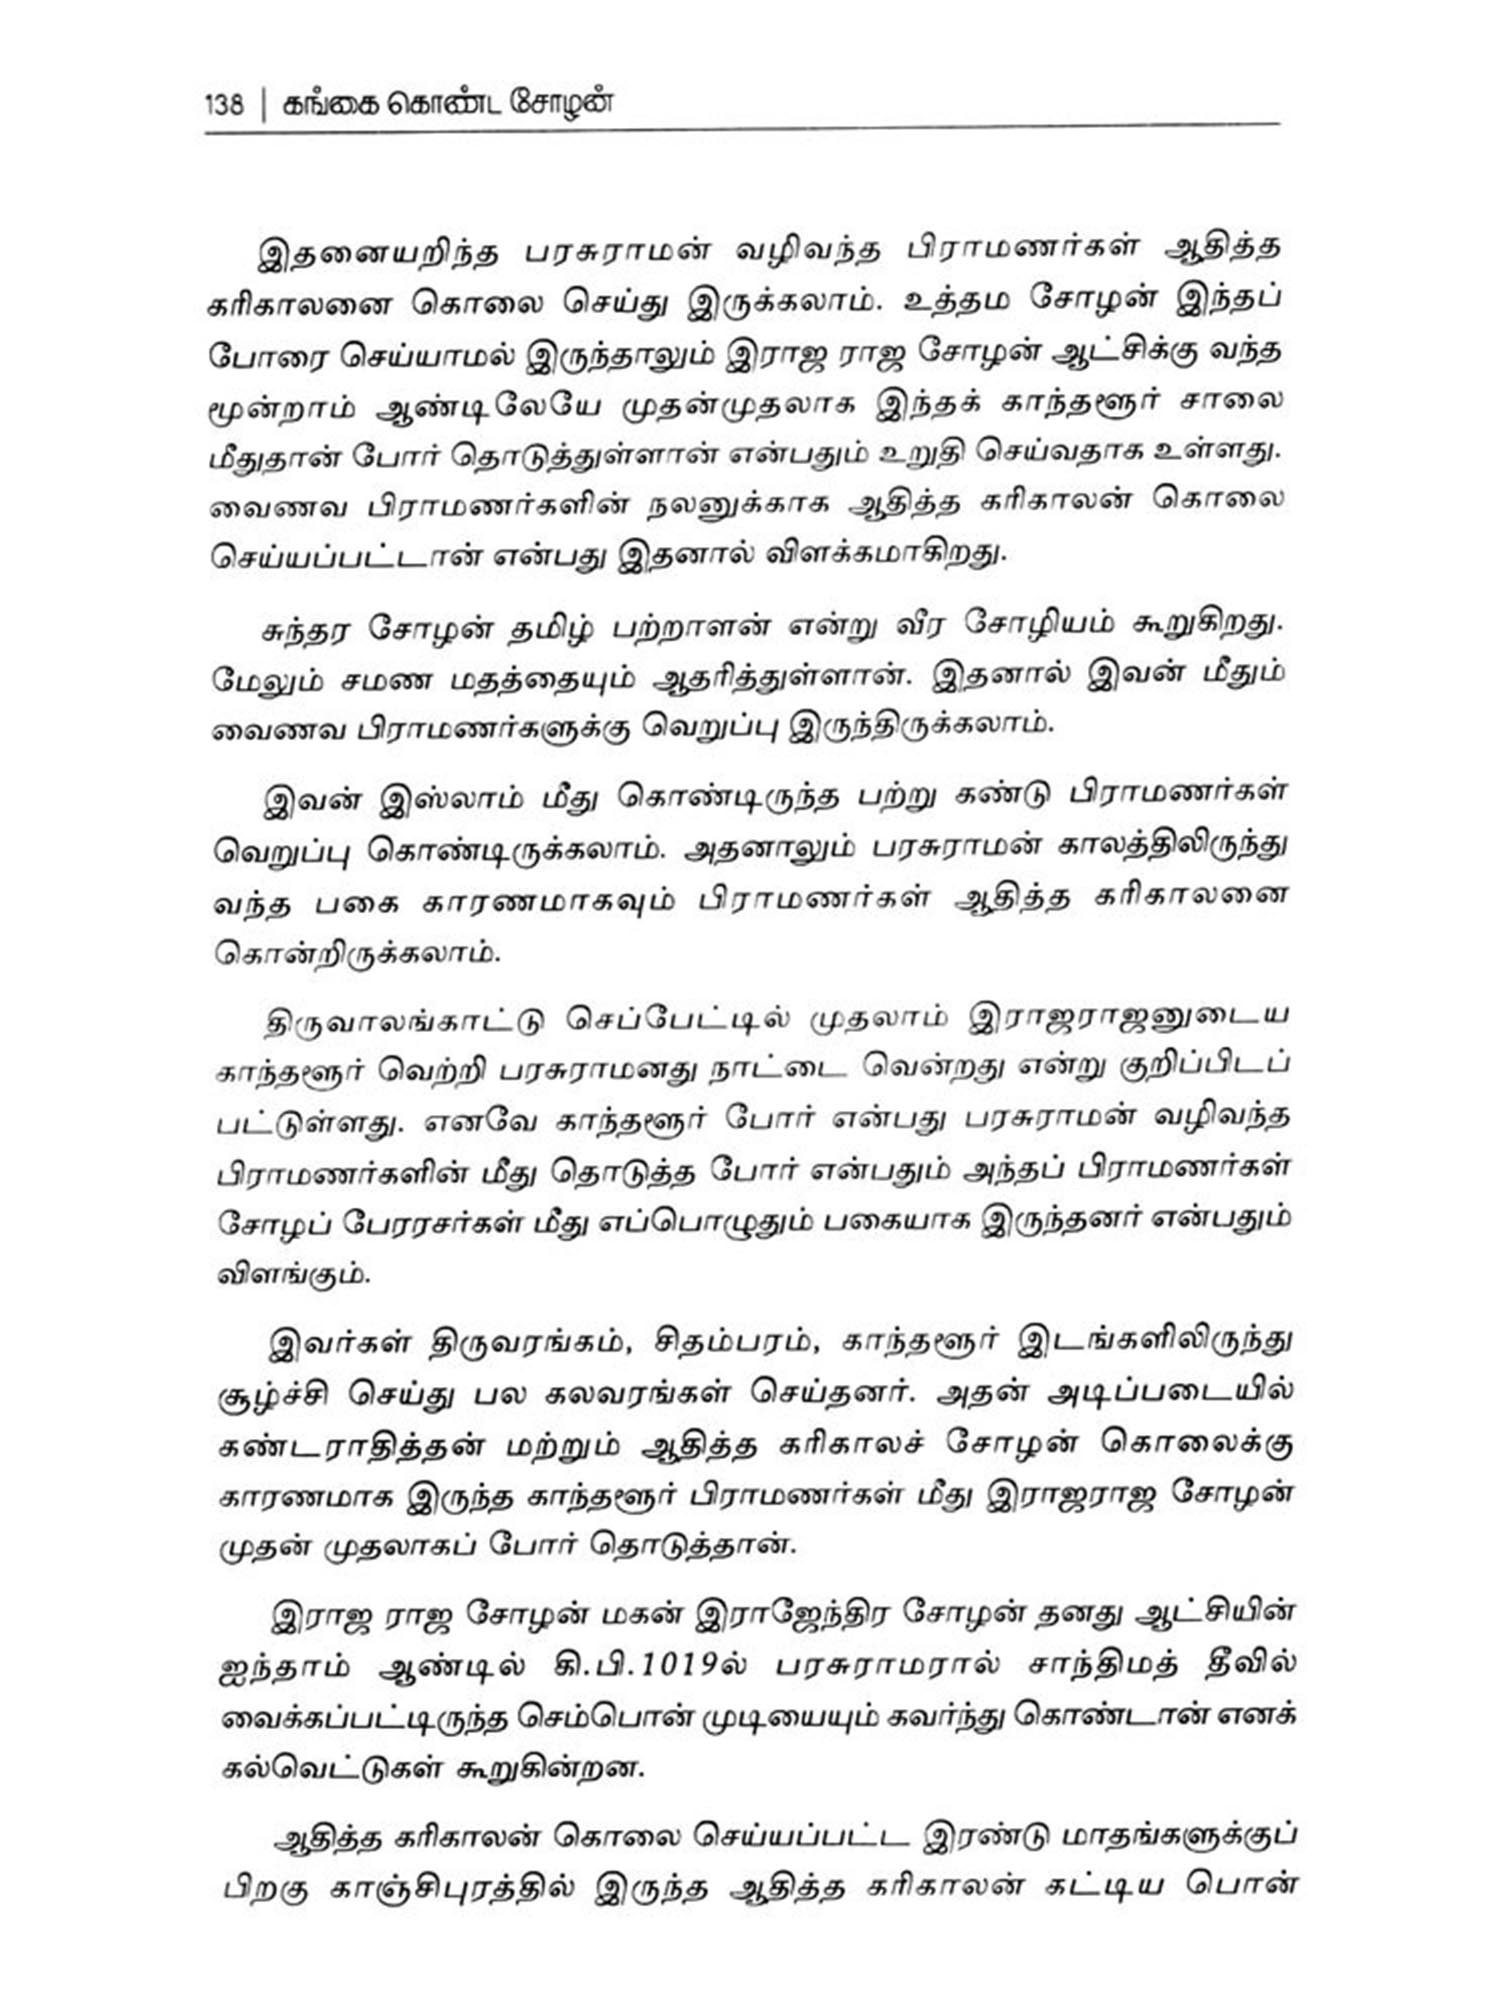 138 | கங்கை கொண்ட சோழன்
இதனையறிந்த பரசுராமன் வழிவந்த பிராமணர்கள் ஆதித்த
கரிகாலனை கொலை செய்து இருக்கலாம். உத்தம சோழன் இந்தப்
போரை செய்யாமல் இருந்தாலும் இராஜ ராஜ சோழன் ஆட்சிக்கு வந்த
மூன்றாம் ஆண்டிலேயே முதன்முதலாக இந்தக் காந்தளூர் சாலை
மீதுதான் போர் தொடுத்துள்ளான் என்பதும் உறுதி செய்வதாக உள்ளது.
வைணவ பிராமணர்களின் நலனுக்காக ஆதித்த கரிகாலன் கொலை
செய்யப்பட்டான் என்பது இதனால் விளக்கமாகிறது.
சுந்தர சோழன் தமிழ் பற்றாளன் என்று வீர சோழியம் கூறுகிறது.
மேலும் சமண மதத்தையும் ஆதரித்துள்ளான். இதனால் இவன் மீதும்
வைணவ பிராமணர்களுக்கு வெறுப்பு இருந்திருக்கலாம்.
இவன் இஸ்லாம் மீது கொண்டிருந்த பற்று கண்டு பிராமணர்கள்
வெறுப்பு கொண்டிருக்கலாம். அதனாலும் பரசுராமன் காலத்திலிருந்து
வந்த பகை காரணமாகவும் பிராமணர்கள் ஆதித்த கரிகாலனை
கொன்றிருக்கலாம்.
திருவாலங்காட்டு செப்பேட்டில் முதலாம் இராஜராஜனுடைய
காந்தளூர் வெற்றி பரசுராமனது நாட்டை வென்றது என்று குறிப்பிடப்
பட்டுள்ளது. எனவே காந்தளூர் போர் என்பது பரசுராமன் வழிவந்த
பிராமணர்களின் மீது தொடுத்த போர் என்பதும் அந்தப் பிராமணர்கள்
சோழப் பேரரசர்கள் மீது எப்பொழுதும் பகையாக இருந்தனர் என்பதும்
விளங்கும்.
இவர்கள் திருவரங்கம், சிதம்பரம், காந்தளூர் இடங்களிலிருந்து
சூழ்ச்சி செய்து பல கலவரங்கள் செய்தனர். அதன் அடிப்படையில்
கண்டராதித்தன் மற்றும் ஆதித்த கரிகாலச் சோழன் கொலைக்கு
காரணமாக இருந்த காந்தளூர் பிராமணர்கள் மீது இராஜராஜ சோழன்
முதன் முதலாகப் போர் தொடுத்தான்.
இராஜ ராஜ சோழன் மகன் இராஜேந்திர சோழன் தனது ஆட்சியின்
ஐந்தாம் ஆண்டில் கி.பி.1019ல் பரசுராமரால் சாந்திமத் தீவில்
வைக்கப்பட்டிருந்த செம்பொன் முடியையும் கவர்ந்து கொண்டான் எனக்
கல்வெட்டுகள் கூறுகின்றன.
ஆதித்த கரிகாலன் கொலை செய்யப்பட்ட இரண்டு மாதங்களுக்குப்
பிறகு காஞ்சிபுரத்தில் இருந்த ஆதித்த கரிகாலன் கட்டிய பொன்